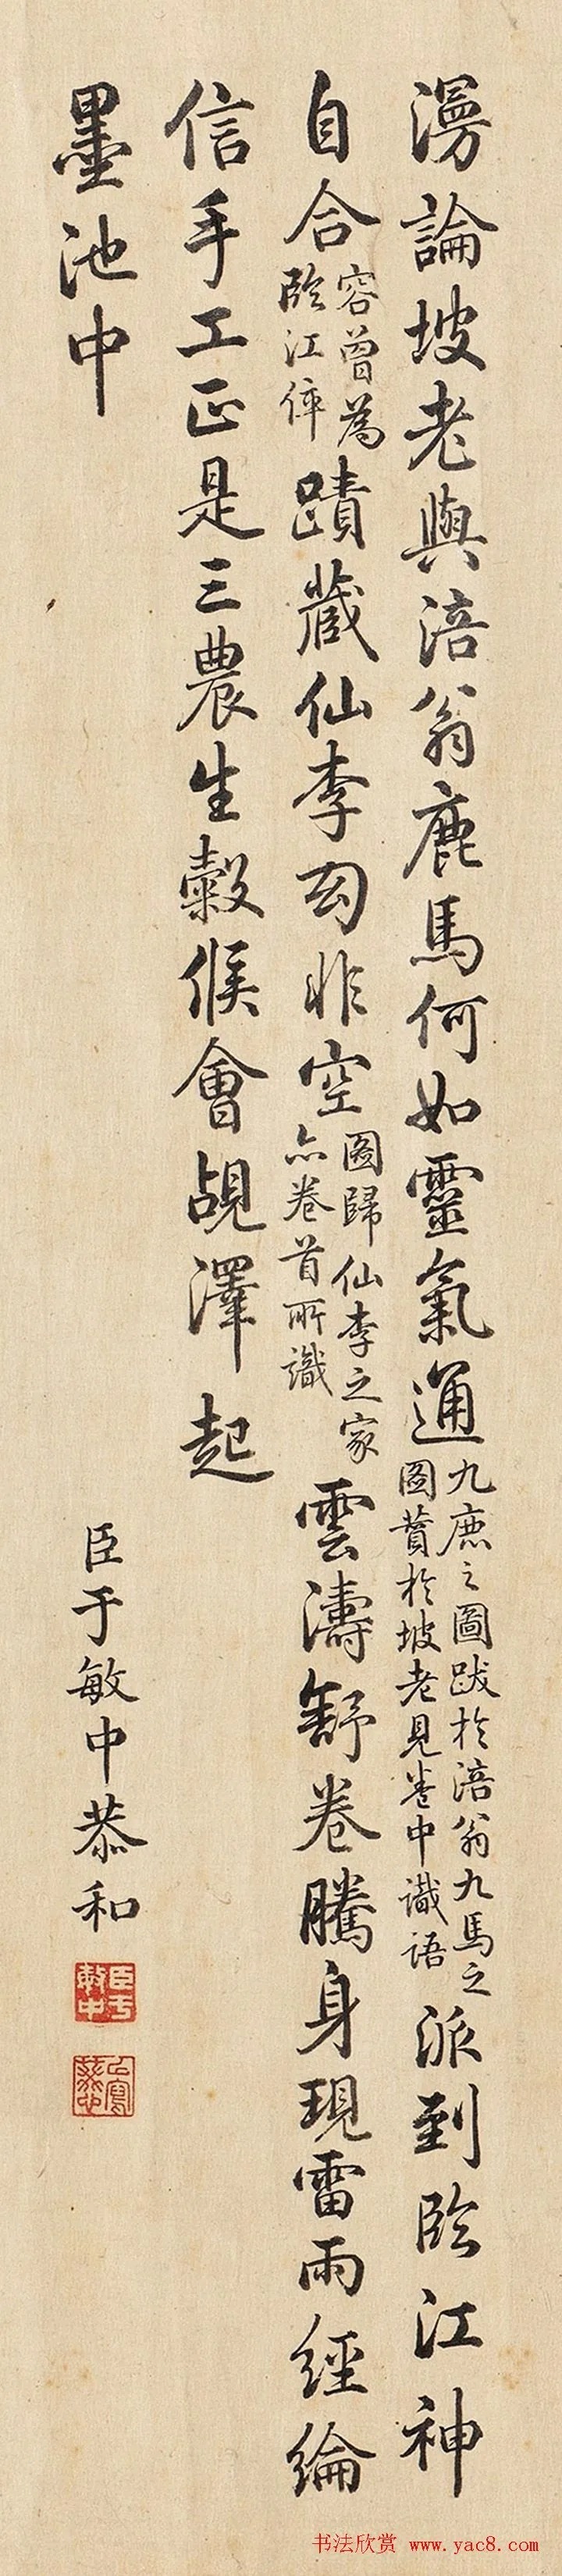 漫論坡老與涪翁鹿馬何如靈氣通
九鹿之圖跋於涪翁九馬之
圖贊於坡老見卷中識語
派到臨江神
自合
容曾為
臨江倅
蹟藏仙李幻非空
圖歸仙李之家
亦卷首所識
雲濤舒卷騰身現雷雨經綸
信手工正是三農生穀候會覘澤起
墨池中
臣于敏中恭和
臣于敏中
书法欣赏 www.yac8.com